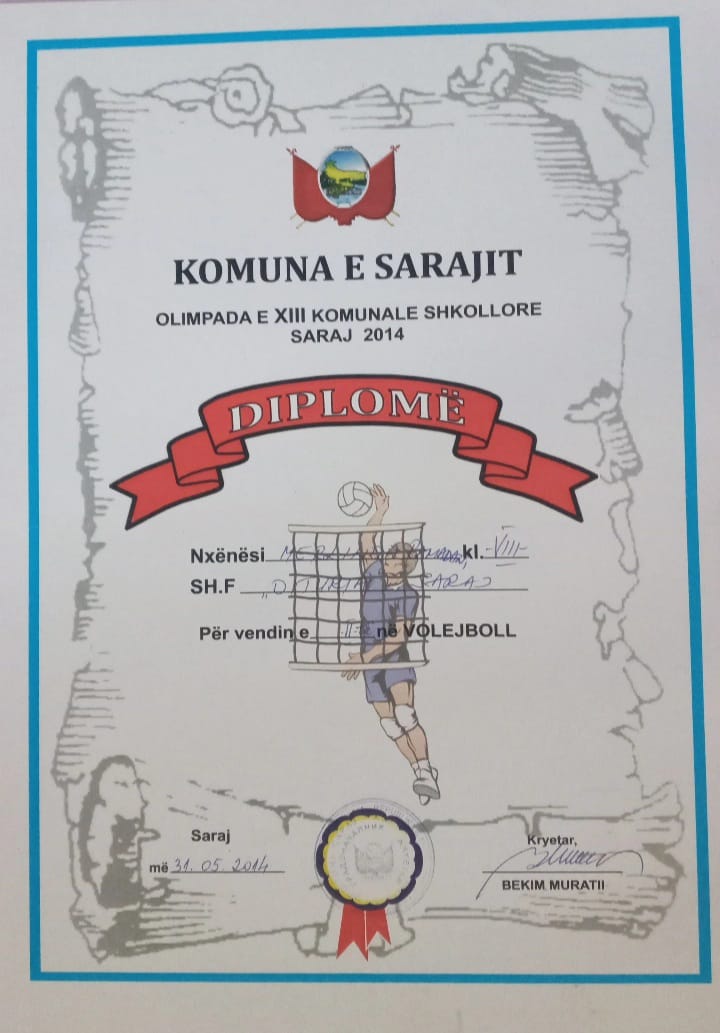 KOMUNA E SARAJIT
OLIMPADA E XIII KOMUNALE SHKOLLORE
SARAJ 2014
DIPLOMË
Nxënësi kl. -VIII-
SH.F SARAJ
Për vendin e -II-të në VOLEJBOLL
Saraj
më 31.05.2014
Kryetar,
BEKIM MURATII